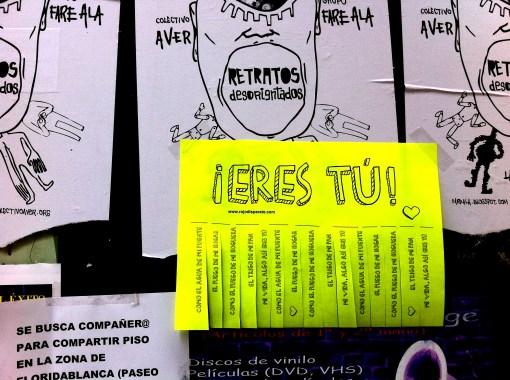 COLECTIVO
AVER
GRUPO
FARE ALA
COLECTIVO
AVER
GRUPO
FARE ALA
COLECTIVO
AVER
RETRATOS
desorientados
¡ERES TÚ!
www.rojodisperate.com
COMO EL AGUA DE MI FUENTE
EL FUEGO DE MI HOGAR
COMO EL FUEGO DE MI HOGUERA
MI VIDA, ALGO ASÍ ERES TÚ
COMO EL AGUA DE MI FUENTE
EL FUEGO DE MI HOGAR
COMO EL FUEGO DE MI HOGUERA
EL TRIGO DE MI PAN
MI VIDA, ALGO ASÍ ERES TÚ
COMO EL AGUA DE MI FUENTE
EL FUEGO DE MI HOGAR
COMO EL FUEGO DE MI HOGUERA
EL TRIGO DE MI PAN
MI VIDA, ALGO ASÍ ERES TÚ
ÉXITO
SE BUSCA COMPAÑER@
PARA COMPARTIR PISO
EN LA ZONA DE
FLORIDABLANCA (PASEO
(Artículos de 1ª y 2ª mano)
Discos de vinilo
Películas (DVD, VHS)